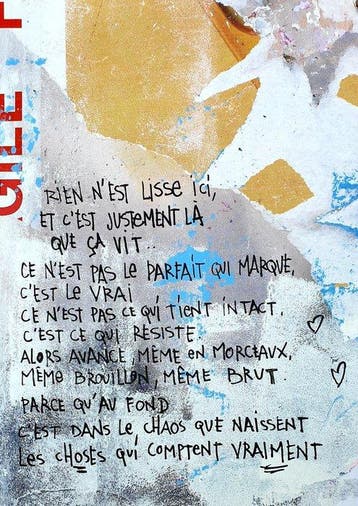 GILE F
RIEN N'EST LISSE ICI,
ET C'EST JUSTEMENT LÀ
QUE ÇA VIT..
CE N'EST PAS LE PARFAIT QUI MARQUE,
C'EST LE VRAI
CE N'EST PAS CE QUI TIENT INTACT,
C'EST CE QUI RÉSISTE.
ALORS AVANCE, MÊME EN MORCEAUX,
MÊME BROUILLON, MÊME BRUT.
PARCE QU'AU FOND
C'EST DANS LE CHAOS QUE NAISSENT
LES CHOSES QUI COMPTENT VRAIMENT